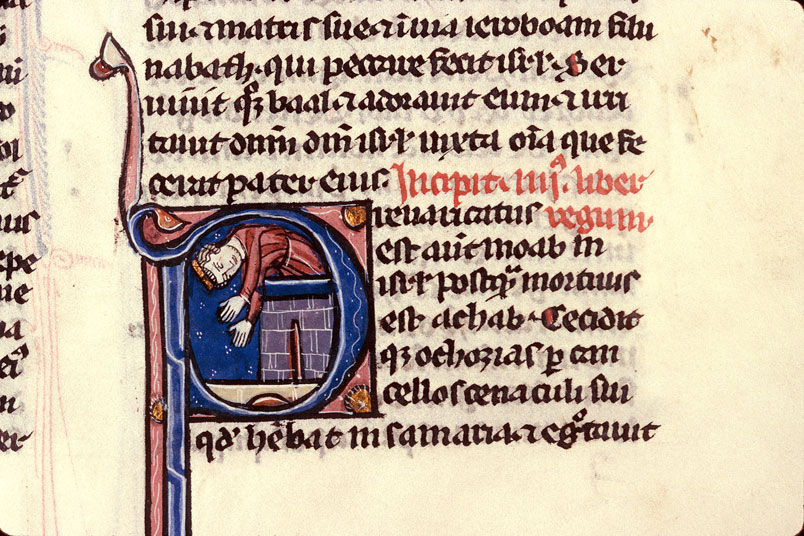 sui ⁊ matris sue ⁊ i uia ieroboam filii
nabath. qui peccare fecit isrl. Ser
uiuit qz baal ⁊ adorauit eum ⁊ irri
tauit dnm dm isrl iuxta oia que fe
cerat pater eius. Incipit. iiijͥ. liber
Preuaricatus regum.
est aut moab in
isrl postqͣ mortuus
est achab. Cecidit
qz ochozias p can
cellos cenaculi sui
qd̛ hēbat in samaria ⁊ egͦtauit